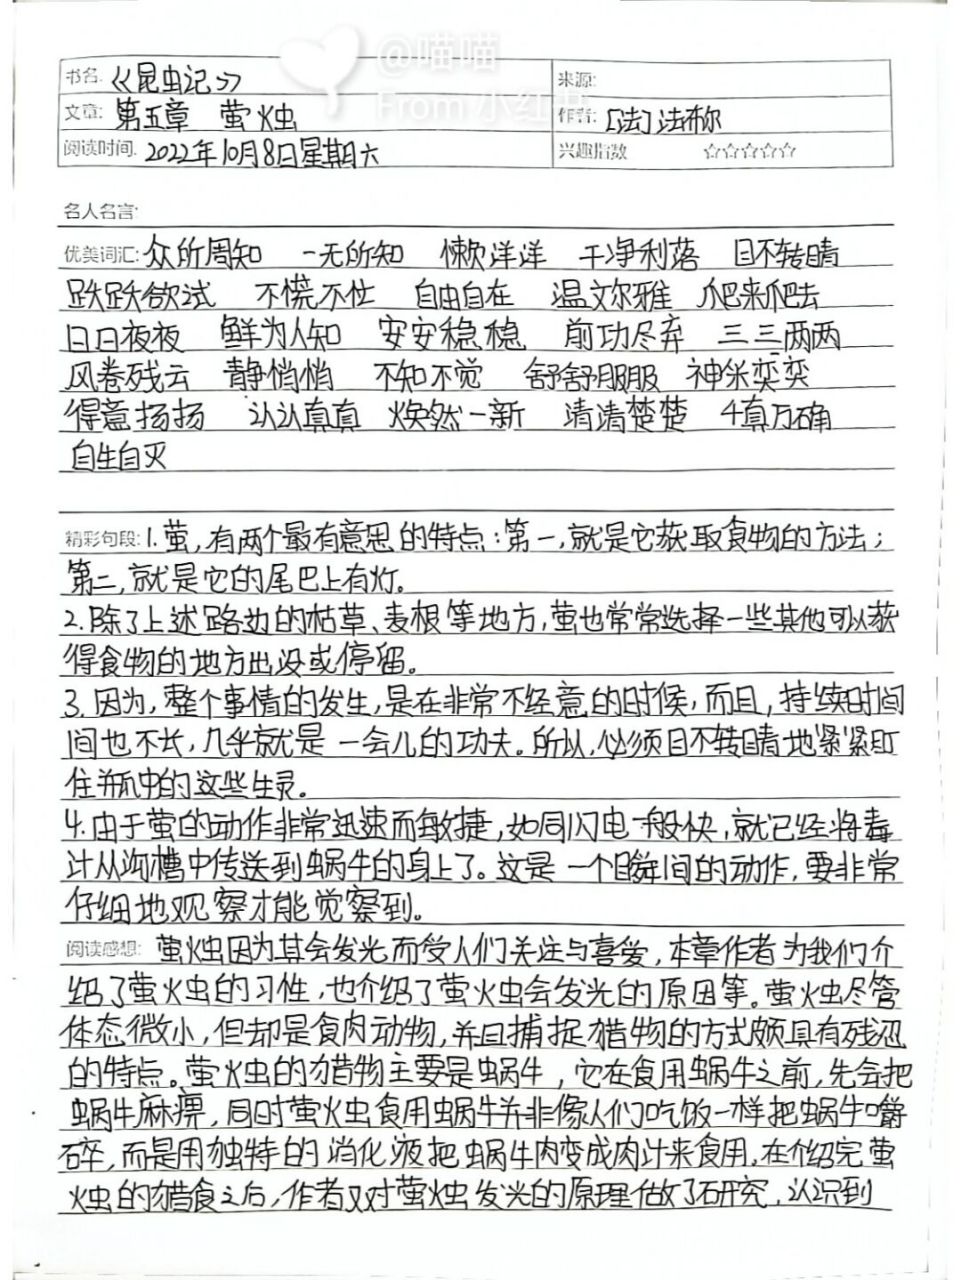 @喵喵
From 小红书
书名: 《昆虫记》 来源:
文章: 第五章 萤火虫 作者: [法]法布尔
阅读时间: 2022年10月8日星期六 兴趣指数 ☆☆☆☆☆
名人名言:
优美词汇: 众所周知 一无所知 懒洋洋 干净利落 目不转睛
跃跃欲试 不慌不忙 自由自在 温文尔雅 爬来爬去
日日夜夜 鲜为人知 安安稳稳 前功尽弃 三三两两
风卷残云 静悄悄 不知不觉 舒舒服服 神采奕奕
得意扬扬 认认真真 焕然一新 清清楚楚 千真万确
自生自灭
精彩句段: 1.萤,有两个最有意思的特点:第一,就是它获取食物的方法;
第二,就是它的尾巴上有灯。
2.除了上述路边的枯草、麦根等地方,萤也常常选择一些其他可以获
得食物的地方出没或停留。
3.因为,整个事情的发生,是在非常不经意的时候,而且,持续时间
间也不长,几乎就是一会儿的功夫。所以,必须目不转睛地紧紧盯
住瓶中的这些生灵。
4.由于萤的动作非常迅速而敏捷,如同闪电一般快,就已经将毒
汁从沟槽中传送到蜗牛的身上了。这是一个瞬间的动作,要非常
仔细地观察才能觉察到。
阅读感想: 萤火虫因为其会发光而受人们关注与喜爱,本章作者为我们介
绍了萤火虫的习性,也介绍了萤火虫会发光的原因等。萤火虫尽管
体态微小,但却是食肉动物,并且捕捉猎物的方式颇具有残忍
的特点。萤火虫的猎物主要是蜗牛,它在食用蜗牛之前,先会把
蜗牛麻痹,同时萤火虫食用蜗牛并非像人们吃饭一样把蜗牛嚼
碎,而是用独特的消化液把蜗牛肉变成肉汁来食用。在介绍完萤
火虫的猎食之后,作者又对萤火虫发光的原理做了研究,认识到